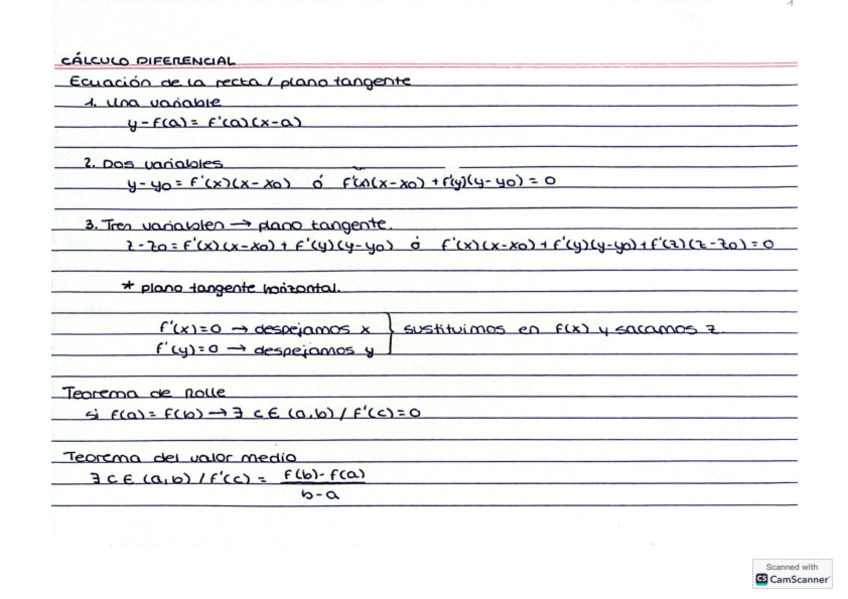 1
CÁLCULO DIFERENCIAL
Ecuación de la recta / plano tangente
1. Una variable
y-f(a) = f'(a)(x-a)
2. Dos variables
y-y0 = f'(x)(x-x0) ó f'(x)(x-x0) + f'(y)(y-y0) = 0
3. Tres variables → plano tangente.
z-z0 = f'(x)(x-x0) + f'(y)(y-y0) ó f'(x)(x-x0) + f'(y)(y-y0) + f'(z)(z-z0) = 0
* plano tangente horizontal.
f'(x)=0 → despejamos x } sustituimos en f(x) y sacamos z.
f'(y)=0 → despejamos y
Teorema de Rolle
si f(a) = f(b) → ∃ c ∈ (a,b) / f'(c)=0
Teorema del valor medio
∃ c ∈ (a,b) / f'(c) = f(b)-f(a)
b-a
Scanned with
CS CamScanner